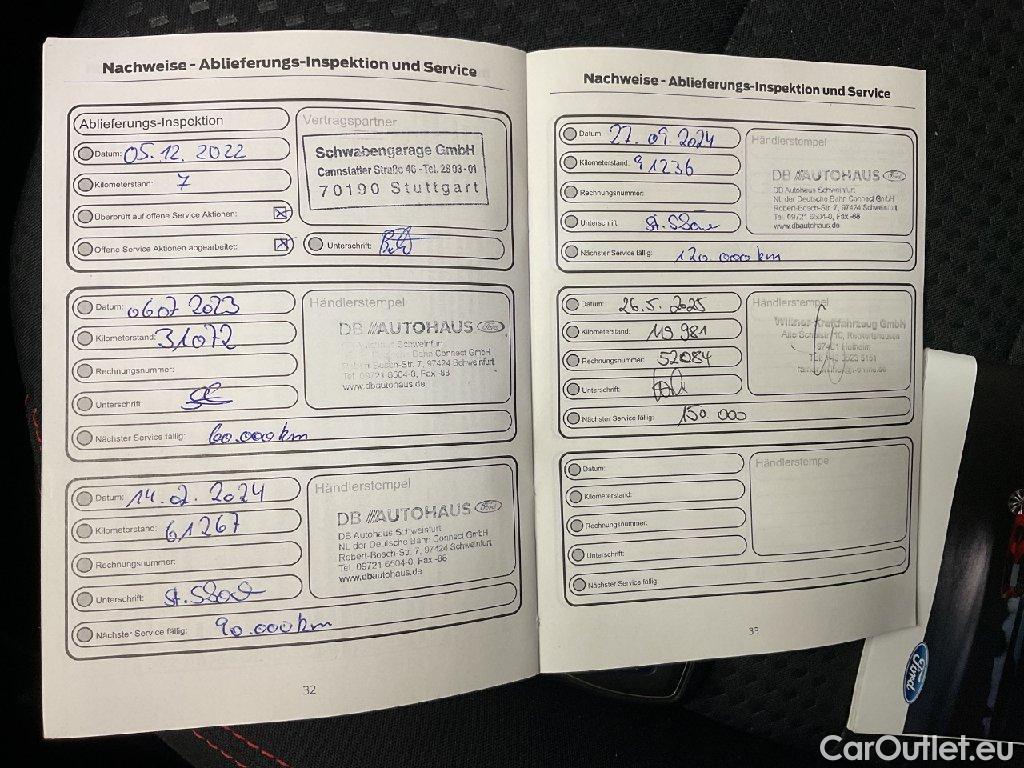 Nachweise - Ablieferungs-Inspektion und Service
Ablieferungs-Inspektion
Datum: 05.12.2022
Kilometerstand: 7
Überprüft auf offene Service Aktionen:
Offene Service Aktionen angearbeitet:
Unterschrift:
Vertragspartner
Schwabengarage GmbH
Cannstatter Straße 46 - Tel. 28 03-01
70190 Stuttgart
Datum: 06.07.2023
Kilometerstand: 31072
Rechnungsnummer:
Unterschrift:
Nächster Service fällig: 60.000km
Händlerstempel
DB AUTOHAUS Ford
DB Autohaus Schweinfurt
NL der Deutsche Bahn Connect GmbH
Robert-Bosch-Str. 7, 97424 Schweinfurt
Tel. 09721 6504-0, Fax -88
www.dbautohaus.de
Datum: 14.02.2024
Kilometerstand: 61267
Rechnungsnummer:
Unterschrift:
Nächster Service fällig: 90.000km
Händlerstempel
DB AUTOHAUS Ford
DB Autohaus Schweinfurt
NL der Deutsche Bahn Connect GmbH
Robert-Bosch-Str. 7, 97424 Schweinfurt
Tel. 09721 6504-0, Fax -88
www.dbautohaus.de
32
Nachweise - Ablieferungs-Inspektion und Service
Datum: 27.09.2024
Kilometerstand: 91236
Rechnungsnummer:
Unterschrift:
Nächster Service fällig: 120.000km
Händlerstempel
DB AUTOHAUS Ford
DB Autohaus Schweinfurt
NL der Deutsche Bahn Connect GmbH
Robert-Bosch-Str. 7, 97424 Schweinfurt
Tel. 09721 6504-0, Fax -88
www.dbautohaus.de
Datum: 26.5.2025
Kilometerstand: 119981
Rechnungsnummer: 52084
Unterschrift:
Nächster Service fällig: 150 000
Händlerstempel
Kraftfahrzeug GmbH
Datum:
Kilometerstand:
Rechnungsnummer:
Unterschrift:
Nächster Service fällig:
Händlerstempel
Ford
CarOutlet.eu